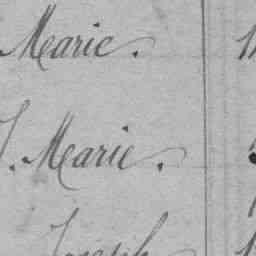 Marie.
J. Marie.
Joseph